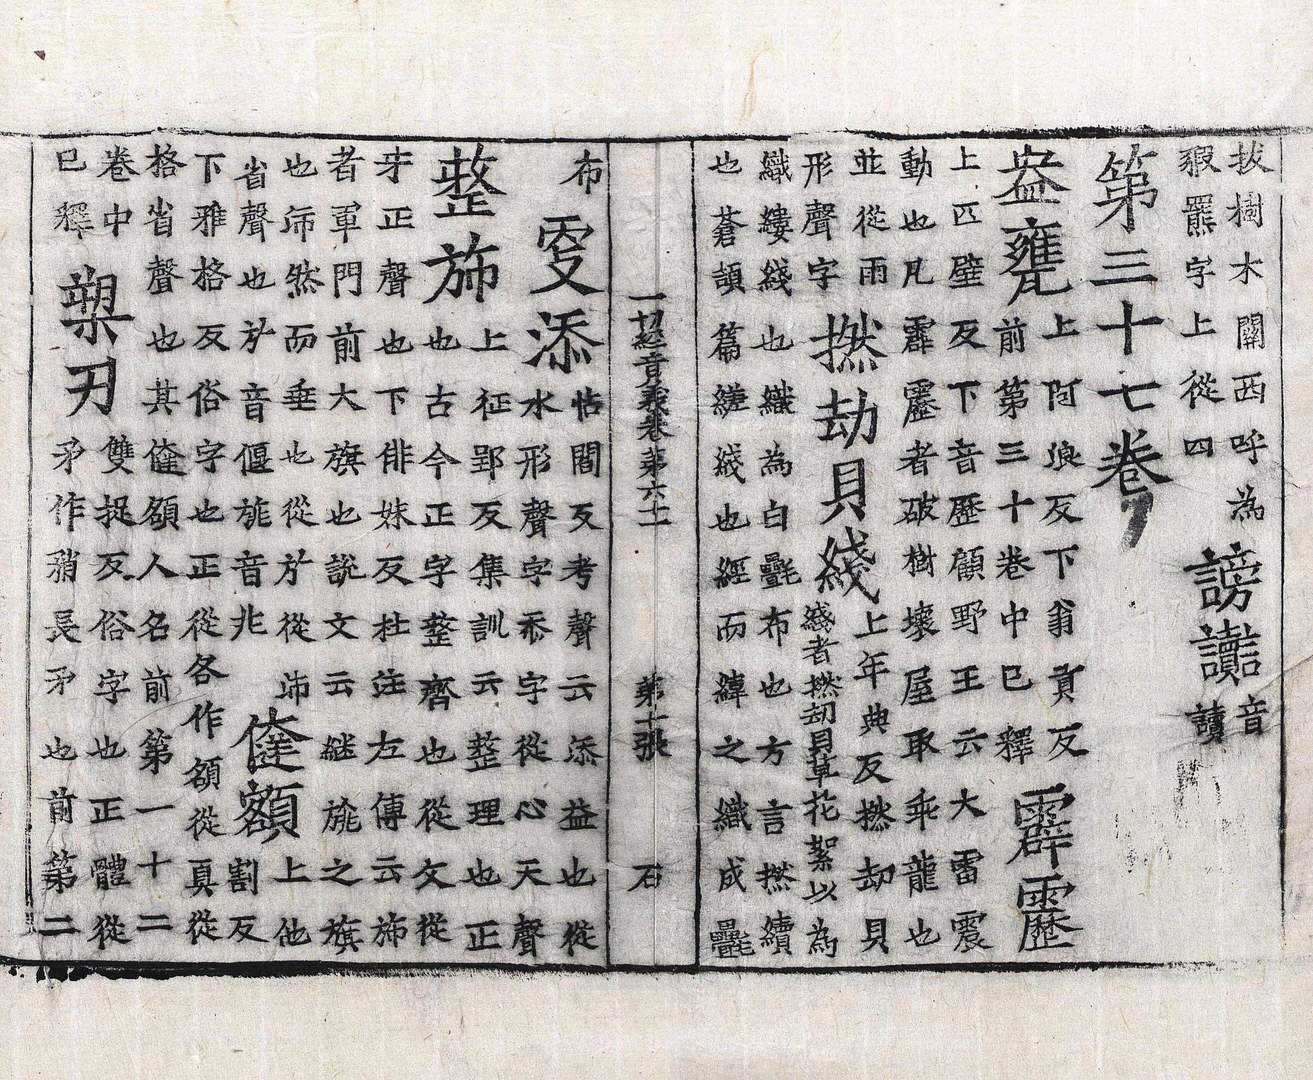 拔樹木關西呼為
豭羆字上從四
謗讟
音
讀
第三十七卷
盎甕
上阿浪反下翁貢反
前第三十卷中已釋
霹靂
上匹壁反下音歷顧野王云大雷震
動也凡霹靂者破樹壞屋取乖龍也
並從雨
形聲字
撚劫貝綫
上年典反撚劫貝
綫者撚刧貝草花絮以為
織縷綫也織為白㲲布也方言撚續
也蒼頡篇縒綫也經而緯之織成㲲
一切經音義卷第六十 第十張 石
布
添
怗閻反考聲云添益也從
水形聲字忝字從心天聲
整斾
上征郢反集訓云整理也正
也古今正字整齊也從文從
正聲也下俳妹反杜注左傳云斾
者軍門前大旗也說文云繼旐之旗
也斾然而垂也從㫃從
省聲也㫃音偃旐音兆
額
上他
割反
下雅格反俗字也正從各作頟從頁從
格省聲也其額人名前第一十二
卷中
已釋
槊刃
雙捉反俗字也正體從
矛作矟長矛也前第二